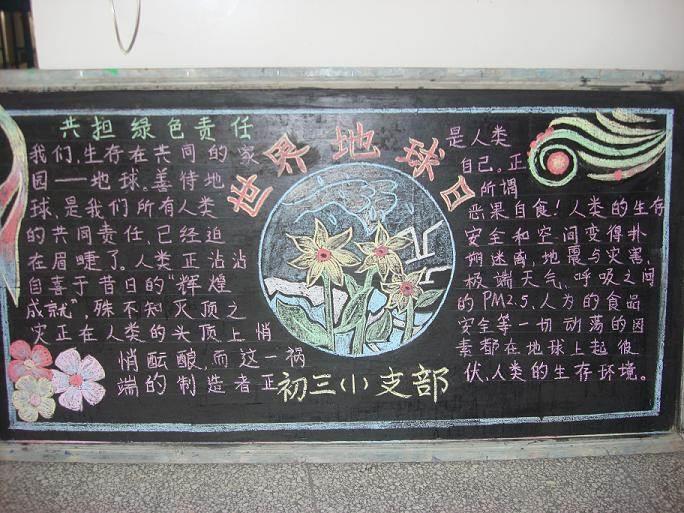 共担绿色责任
我们，生存在共同的家
园——地球。善待地
球，是我们所有人类
的共同责任，已经迫
在眉睫了。人类正沾沾
自喜于昔日的“辉煌
成就”，殊不知灭顶之
灾正在人类的头顶上悄
悄酝酿，而这一祸
端的制造者正
世界地球日
初三（1）支部
是人类
自己。正
所谓
恶果自食！人类的生存
安全和空间变得扑
朔迷离，地震与灾害，
极端天气，呼吸之间
的PM2.5，人为的食品
安全等一切动荡的因
素都在地球上起彼
伏，人类的生存环境。